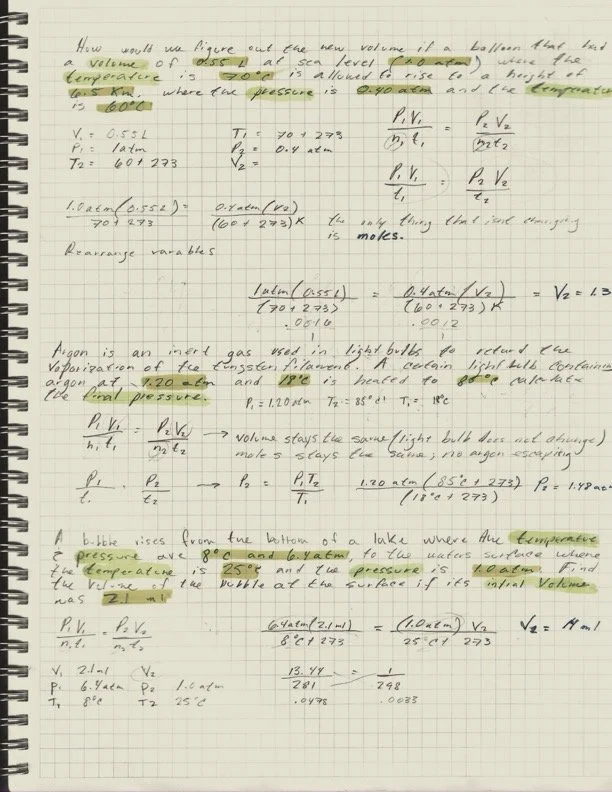 How would we figure out the new volume if a balloon that had
a volume of 0.55 L at sea level (1.0 atm) where the
temperature is 70°C is allowed to rise to a height of
6.5 Km, where the pressure is 0.40 atm and the temperature
is 60°C
V₁ = 0.55L T₁ = 70 + 273
P₁ = 1atm P₂ = 0.4 atm
T₂ = 60 + 273 V₂ =
P₁V₁/n₁t₁ = P₂V₂/n₂t₂
P₁V₁/t₁ = P₂V₂/t₂
1.0atm(0.55L)/70+273 = 0.4atm(V₂)/(60+273)K the only thing that isnt changing
is moles.
Rearrange variables
1atm(0.55L)/(70+273) = 0.4atm(V₂)/(60+273)K = V₂ = 1.3
.0016 .0012
Argon is an inert gas used in lightbulbs to retard the
vaporization of the tungsten filament. A certain lightbulb containing
argon at 1.20 atm and 18°C is heated to 85°C calculate
the final pressure. P₁ = 1.20atm T₂ = 85°C T₁ = 18°C
P₁V₁/n₁t₁ = P₂V₂/n₂t₂ → volume stays the same (light bulb does not change)
moles stays the same, no argon escaping
P₁/t₁ . P₂/t₂ → P₂ = P₁T₂/T₁ 1.20 atm (85°C + 273)/(18°C + 273) P₂ = 1.48 at
A bubble rises from the bottom of a lake where the temperature
& pressure are 8°C and 6.4atm, to the waters surface where
the temperature is 25°C and the pressure is 1.0atm. Find
the volume of the bubble at the surface if its initial Volume
was 2.1 ml
P₁V₁/n₁t₁ = P₂V₂/n₂t₂ 6.4atm(2.1ml)/8°C+273 = (1.0atm)V₂/25°C + 273 V₂ = 14 ml
V₁ 2.1ml V₂
P₁ 6.4atm P₂ 1.0atm
T₁ 8°C T₂ 25°C
13.44/281 = 1/298
.0478 .0033